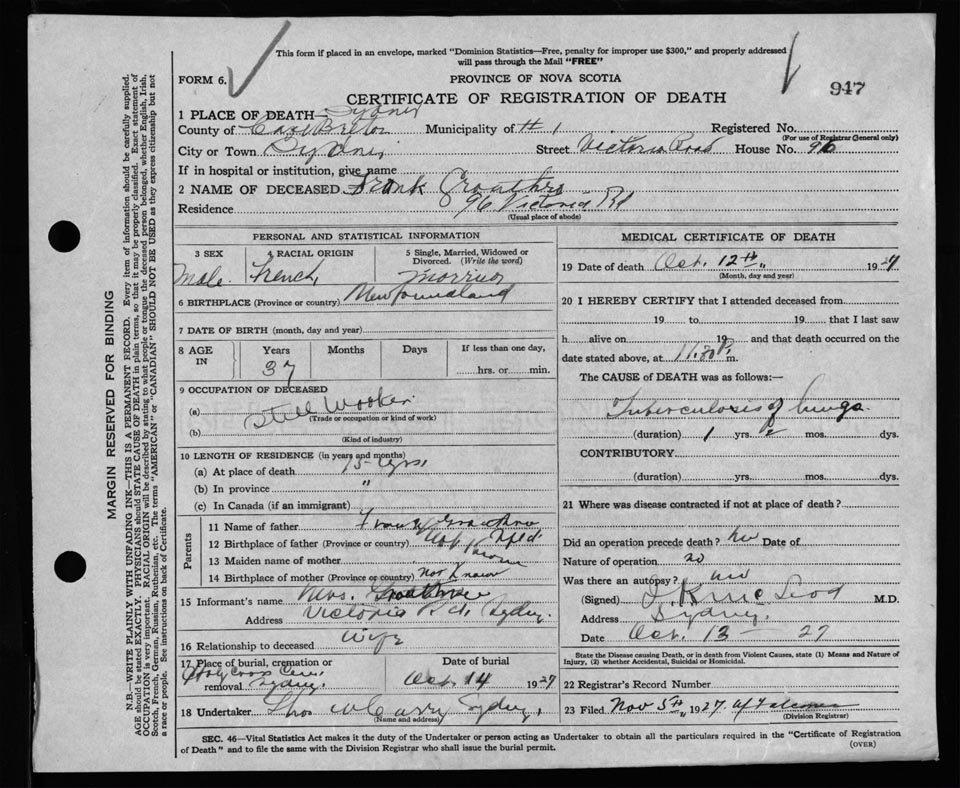 This form if placed in an envelope, marked "Dominion Statistics—Free, penalty for improper use $300," and properly addressed
will pass through the Mail "FREE"
FORM 6.
PROVINCE OF NOVA SCOTIA
947
CERTIFICATE OF REGISTRATION OF DEATH
1 PLACE OF DEATH—Sydney
County of Cape Breton Municipality of # 1 Registered No.
(For use of Registrar General only)
City or Town Sydney Street Victoria Road House No. 96
If in hospital or institution, give name
2 NAME OF DECEASED Frank
Residence 96 Victoria Rd
(Usual place of abode)
PERSONAL AND STATISTICAL INFORMATION
3 SEX 4 RACIAL ORIGIN 5 Single, Married, Widowed or
Divorced. (Write the word)
Male. French Married
6 BIRTHPLACE (Province or country) Newfoundland
7 DATE OF BIRTH (month, day and year)
8 AGE IN Years Months Days If less than one day,
37 hrs. or min.
9 OCCUPATION OF DECEASED
(a) Steel Worker
(Trade or occupation or kind of work)
(b)
(Kind of industry)
10 LENGTH OF RESIDENCE (in years and months)
(a) At place of death 15 yrs.
(b) In province "
(c) In Canada (if an immigrant)
Parents
11 Name of father Frank
12 Birthplace of father (Province or country) Nfld.
13 Maiden name of mother
14 Birthplace of mother (Province or country) not Known
15 Informant's name Mrs.
Address Victoria Rd. Sydney.
16 Relationship to deceased Wife
17 Place of burial, cremation or Date of burial
removal Holy Cross Cem. Sydney. Oct 14 1927
18 Undertaker Thos Sydney.
(Name and address)
MEDICAL CERTIFICATE OF DEATH
19 Date of death Oct. 12th 1927
(Month, day and year)
20 I HEREBY CERTIFY that I attended deceased from
19 to 19 that I last saw
h alive on 19 and that death occurred on the
date stated above, at 11.30 P. m.
The CAUSE of DEATH was as follows:—
Tuberculosis of lungs
(duration) 1 yrs. 2 mos. dys.
CONTRIBUTORY
(duration) yrs. mos. dys.
21 Where was disease contracted if not at place of death?
Did an operation precede death? no Date of
Nature of operation no
Was there an autopsy? no
(Signed) M.D.
Address Sydney.
Date Oct. 13 — 27
State the Disease causing Death, or in death from Violent Causes, state (1) Means and Nature of
Injury, (2) whether Accidental, Suicidal or Homicidal.
22 Registrar's Record Number
23 Filed Nov 5th 1927
(Division Registrar)
SEC. 46—Vital Statistics Act makes it the duty of the Undertaker or person acting as Undertaker to obtain all the particulars required in the "Certificate of Registration
of Death" and to file the same with the Division Registrar who shall issue the burial permit.
(OVER)
MARGIN RESERVED FOR BINDING
N.B.—WRITE PLAINLY WITH UNFADING INK—THIS IS A PERMANENT RECORD. Every item of information should be carefully supplied.
AGE should be stated EXACTLY. PHYSICIANS should STATE CAUSE OF DEATH in plain terms, so that it may be properly classified. Exact statement of
OCCUPATION is very important. RACIAL ORIGIN will be described by stating to what people or tongue the deceased person belonged, whether English, Irish,
Scotch, French, German, Russian, Ruthenian, etc. The terms "AMERICAN" or "CANADIAN" SHOULD NOT BE USED as they express citizenship but not
a race or people. See instructions on back of Certificate.